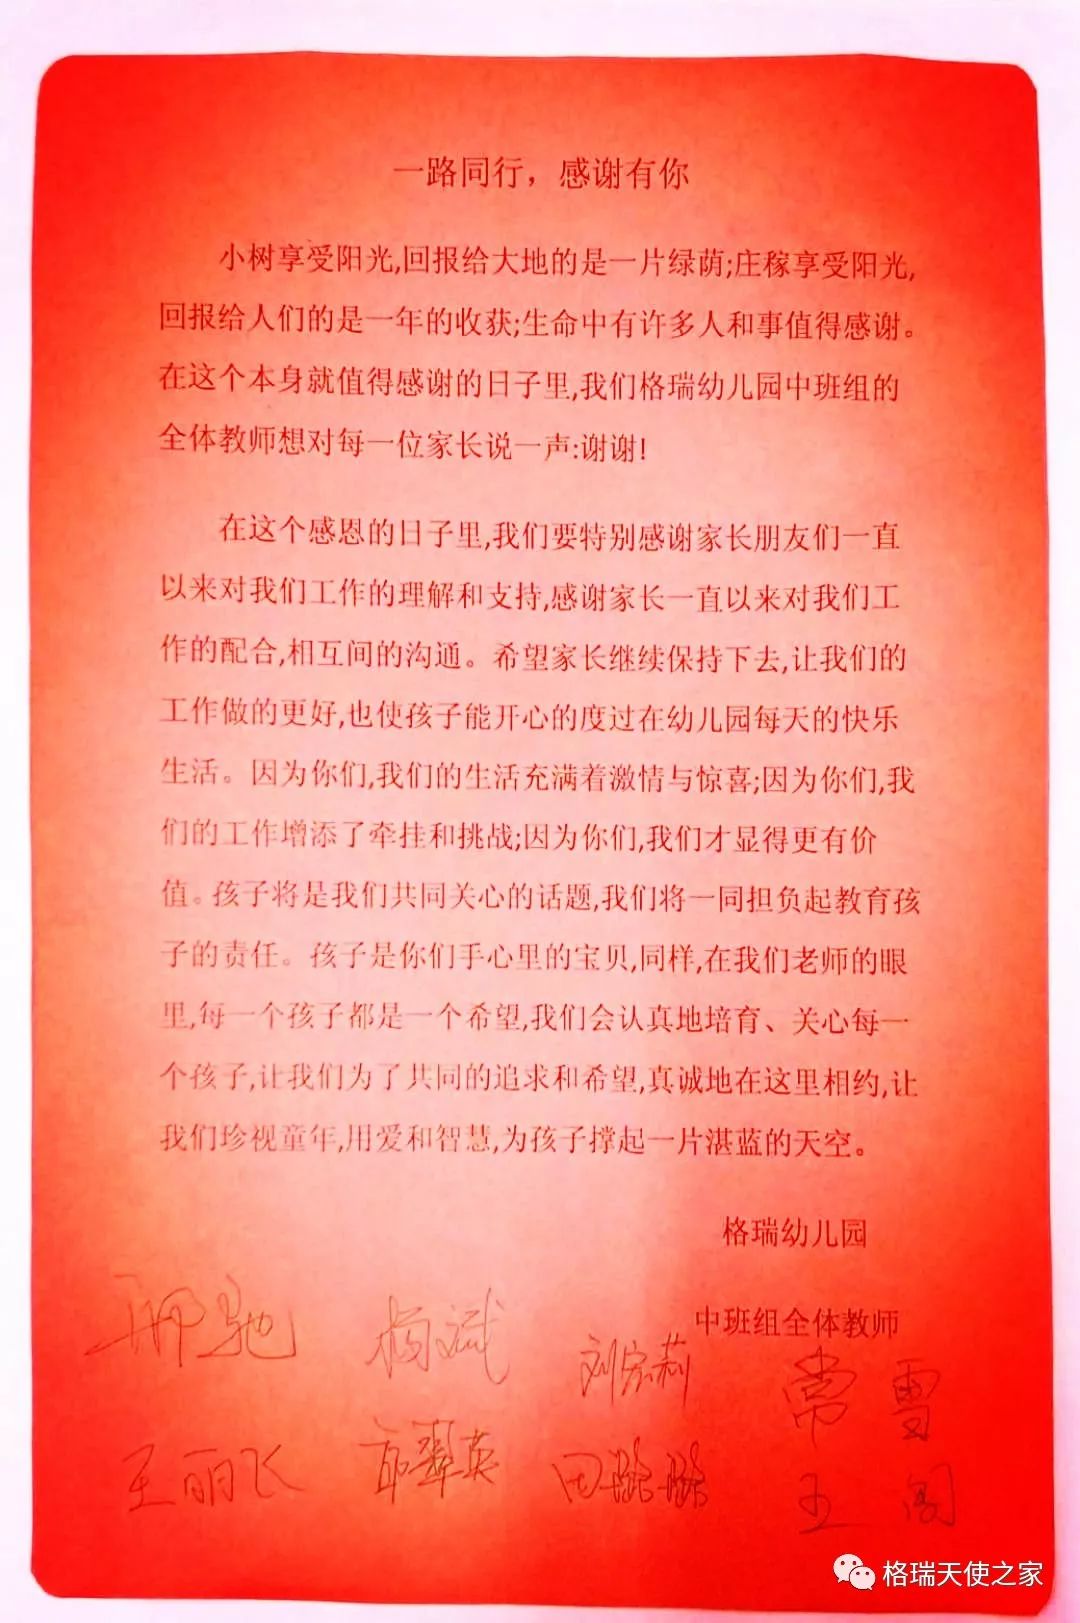 一路同行，感谢有你
小树享受阳光,回报给大地的是一片绿荫;庄稼享受阳光,
回报给人们的是一年的收获;生命中有许多人和事值得感谢。
在这个本身就值得感谢的日子里,我们格瑞幼儿园中班组的
全体教师想对每一位家长说一声:谢谢!
在这个感恩的日子里,我们要特别感谢家长朋友们一直
以来对我们工作的理解和支持,感谢家长一直以来对我们工
作的配合,相互间的沟通。希望家长继续保持下去,让我们的
工作做的更好,也使孩子能开心的度过在幼儿园每天的快乐
生活。因为你们,我们的生活充满着激情与惊喜;因为你们,我
们的工作增添了牵挂和挑战;因为你们,我们才显得更有价
值。孩子将是我们共同关心的话题,我们将一同担负起教育孩
子的责任。孩子是你们手心里的宝贝,同样,在我们老师的眼
里,每一个孩子都是一个希望,我们会认真地培育、关心每一
个孩子,让我们为了共同的追求和希望,真诚地在这里相约,让
我们珍视童年,用爱和智慧,为孩子撑起一片湛蓝的天空。
格瑞幼儿园
中班组全体教师
邢驰 杨斌 刘宏莉 常雪
王丽飞 翠英 田璐璐 王阁
格瑞天使之家